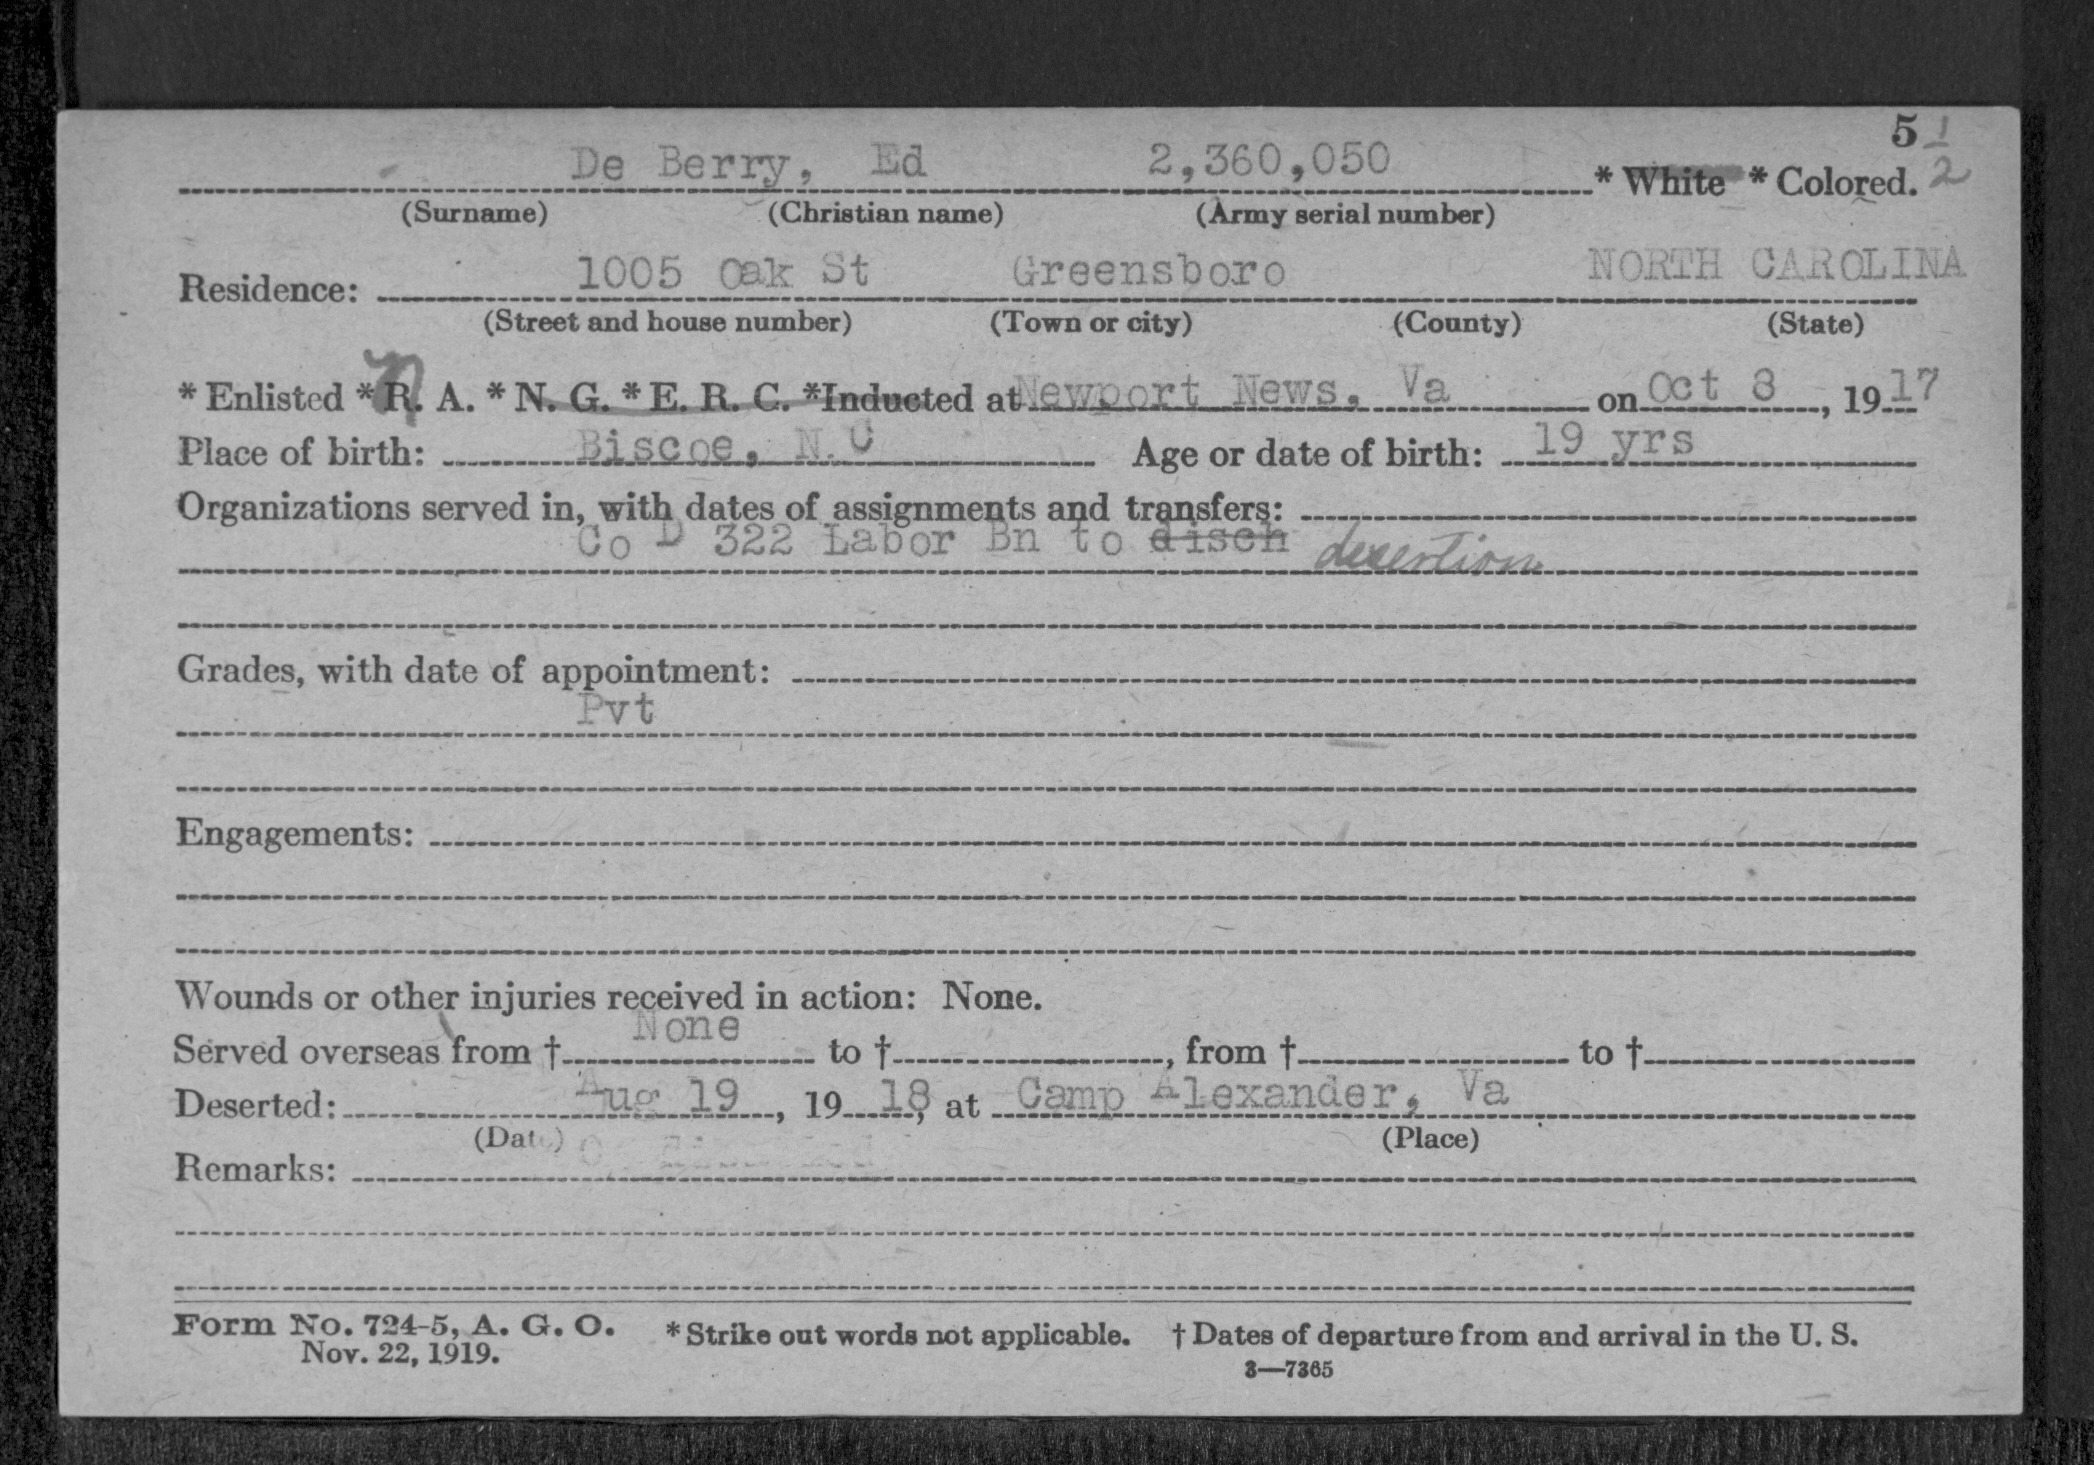 5 1/2
De Berry, Ed 2,360,050 * White * Colored.
(Surname) (Christian name) (Army serial number)
Residence: 1005 Oak St Greensboro NORTH CAROLINA
(Street and house number) (Town or city) (County) (State)
* Enlisted * R. A. * N. G. * E. R. C. *Inducted at Newport News, Va on Oct 8, 1917
Place of birth: Biscoe, N.C Age or date of birth: 19 yrs
Organizations served in, with dates of assignments and transfers:
Co D 322 Labor Bn to disch desertion
Grades, with date of appointment:
Pvt
Engagements:
Wounds or other injuries received in action: None.
Served overseas from † None to †, from † to †
Deserted: Aug 19, 1918, at Camp Alexander, Va
(Date) (Place)
Remarks:
Form No. 724-5, A. G. O. * Strike out words not applicable. † Dates of departure from and arrival in the U. S.
Nov. 22, 1919. 3—7365